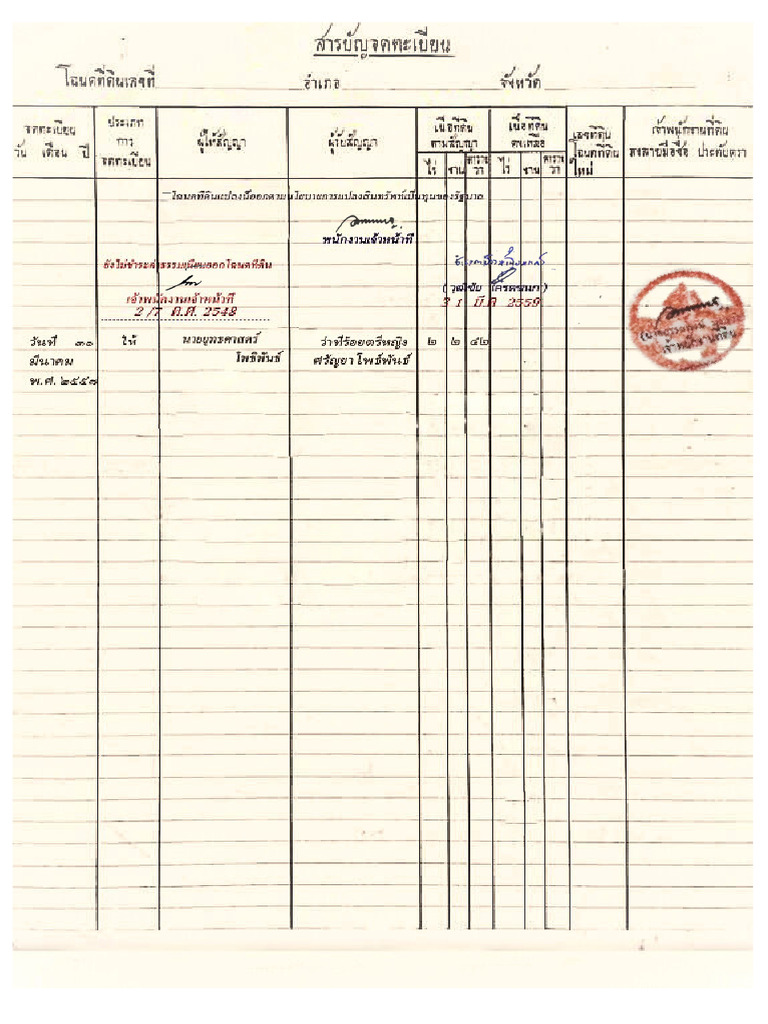 สารบัญจดทะเบียน
โฉนดที่ดินเลขที่ อำเภอ จังหวัด
จดทะเบียน
วัน เดือน ปี
ประเภท
การ
จดทะเบียน
ผู้ให้สัญญา
ผู้รับสัญญา
เนื้อที่ดิน
ตามสัญญา
ไร่ งาน ตาราง
วา
เนื้อที่ดิน
คงเหลือ
ไร่ งาน ตาราง
วา
เลขที่ดิน
โฉนดที่ดิน
ใหม่
เจ้าพนักงานที่ดิน
ลงลายมือชื่อ ประทับตรา
โฉนดที่ดินแปลงนี้ออกตามนโยบายการแปลงสินทรัพย์เป็นทุนของรัฐบาล
พนักงานเจ้าหน้าที่
ยังไม่ชำระค่าธรรมเนียมออกโฉนดที่ดิน
เจ้าพนักงานเจ้าหน้าที่
2/7 ต.ศ. 2548
31 มี.ค 2559
วันที่ ๓๑ ให้ นายยุทธศาสตร์ ว่าที่ร้อยตรีหญิง ๒ ๒ ๔๒
มีนาคม โพธิพันธ์ ศรัญยา โพธิ์พันธ์
พ.ศ. ๒๕๕๗
เจ้าพนักงานที่ดิน